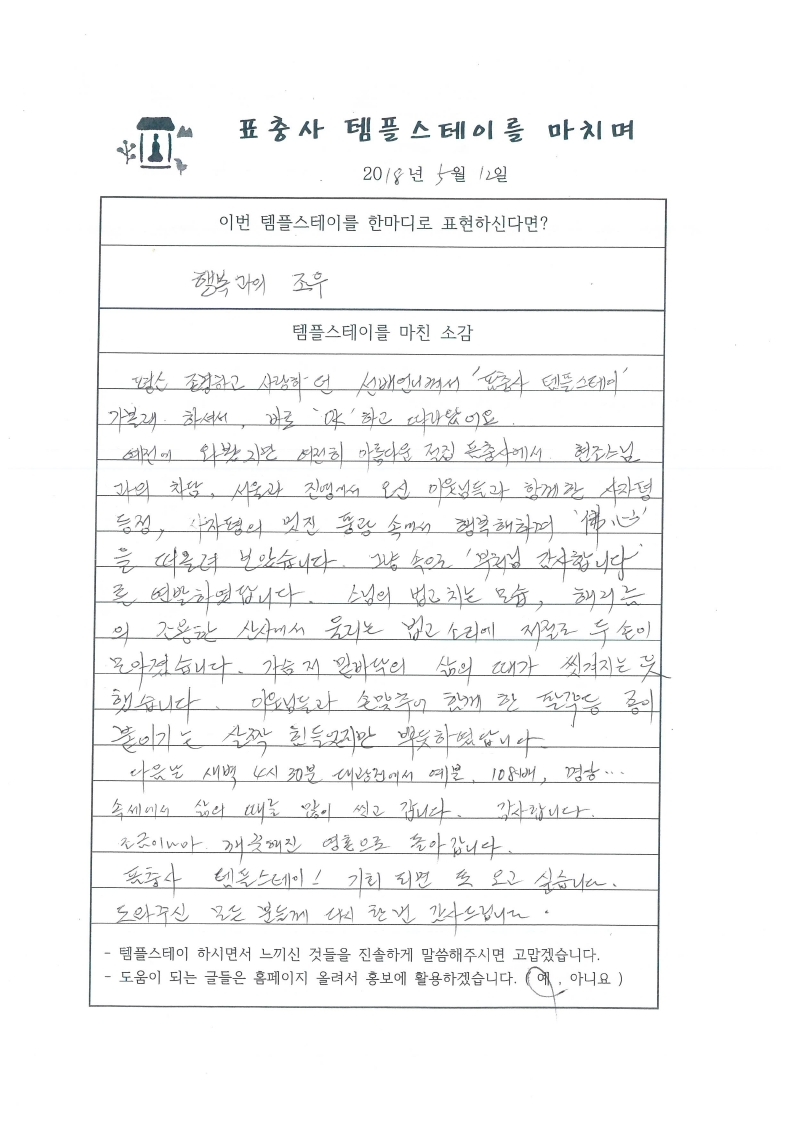 표충사 템플스테이를 마치며
2018년 5월 12일
이번 템플스테이를 한마디로 표현하신다면?
행복과의 조우
템플스테이를 마친 소감
평소 존경하고 사랑하던 선배언니께서 '표충사 템플스테이'
가볼래 하셔서, 바로 'OK'하고 따라왔어요.
예전에 와봤지만 여전히 아름다운 적집 표충사에서 현조스님
과의 차담, 서울과 진영에서 오신 이웃님들과 함께한 사자평
등정, 사자평의 멋진 풍광 속에서 행복해하며 '佛心'
을 떠올려 보았습니다. 그냥 속으로 '부처님 감사합니다'
를 연발하였답니다. 스님의 법고치는 모습, 해거름
의 조용한 산사에서 울리는 법고 소리에 저절로 두 손이
모아졌습니다. 가슴 저 밑바닥의 삶의 때가 씻겨지는 듯
했습니다. 이웃님들과 손맞추어 함께 한 팔각등 종이
붙이기는 살짝 힘들었지만 뿌듯하였답니다.
다음날 새벽 4시 30분 대광전에서 예불, 108배, 명상…
속세에서 삶의 때를 많이 씻고 갑니다. 감사합니다.
조금이나마 깨끗해진 영혼으로 돌아갑니다.
표충사 템플스테이! 기회 되면 또 오고 싶습니다.
도와주신 모든 분들께 다시 한번 감사드립니다.
- 템플스테이 하시면서 느끼신 것들을 진솔하게 말씀해주시면 고맙겠습니다.
- 도움이 되는 글들은 홈페이지 올려서 홍보에 활용하겠습니다. ( 예 , 아니요 )